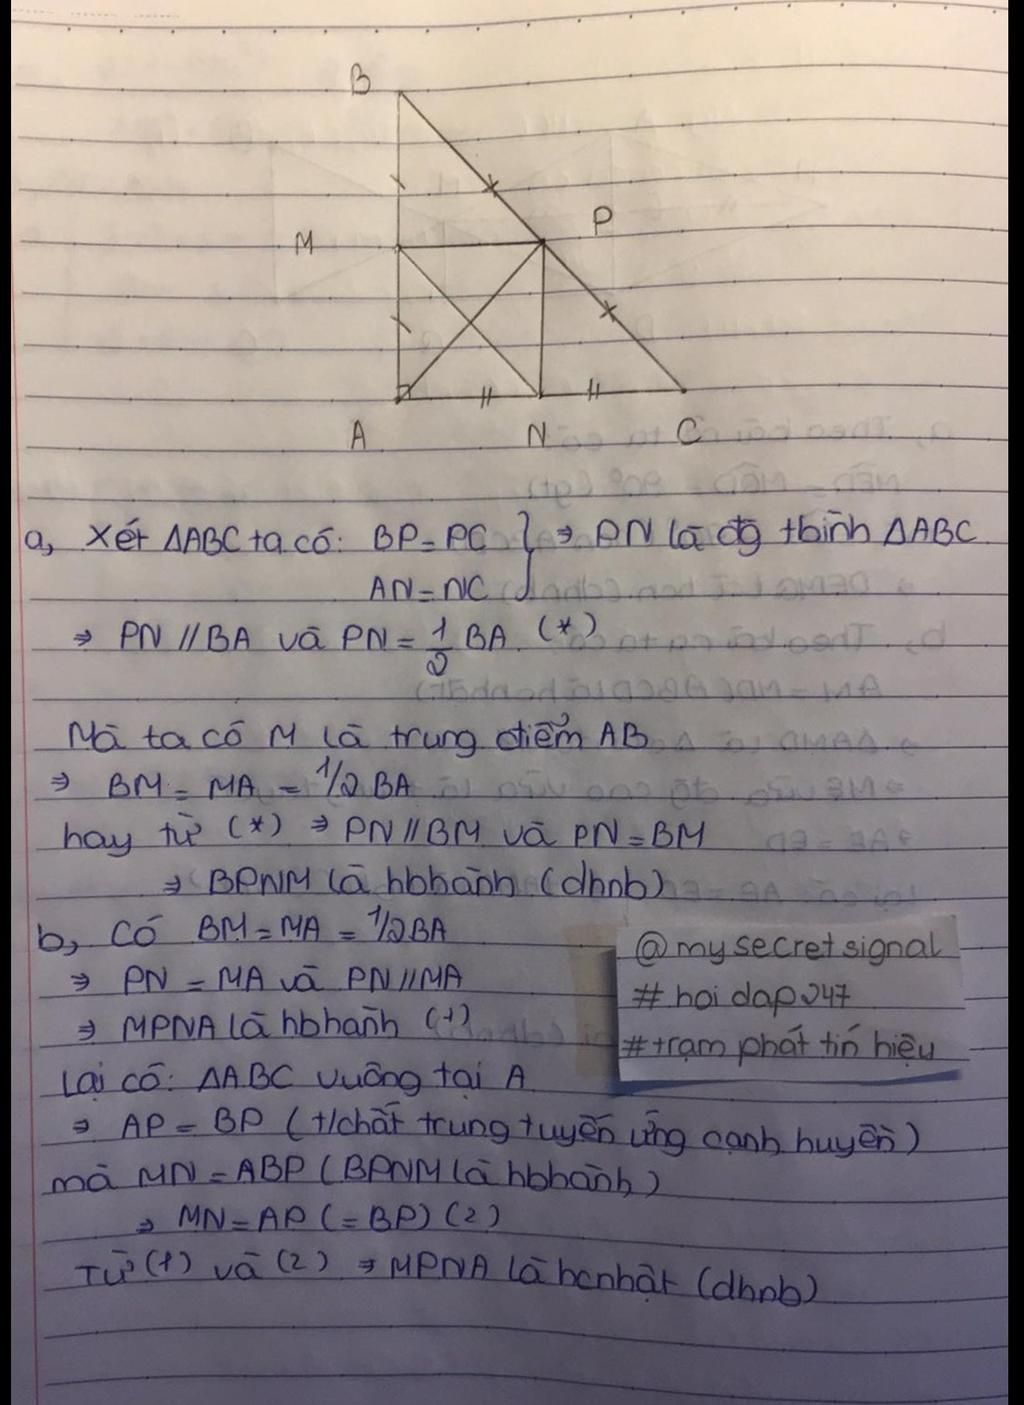 B
P
M
A N C
a, Xét ΔABC ta có: BP = PC } ⇒ PN là đg tbình ΔABC
AN = NC
⇒ PN // BA và PN = 1/2 BA (*)
Mà ta có M là trung điểm AB
⇒ BM = MA = 1/2 BA
hay từ (*) ⇒ PN // BM và PN = BM
⇒ BPNM là hbhành (dhnb)
b, Có BM = MA = 1/2 BA
⇒ PN = MA và PN // MA
⇒ MPNA là hbhành (1)
Lại có: ΔABC vuông tại A
⇒ AP = BP (t/chất trung tuyến ứng cạnh huyền)
mà MN = ABP (BPNM là hbhành)
⇒ MN = AP (= BP) (2)
Từ (1) và (2) ⇒ MPNA là hcnhật (dhnb)
@mysecretsignal
# hoidap247
# trạm phát tín hiệu